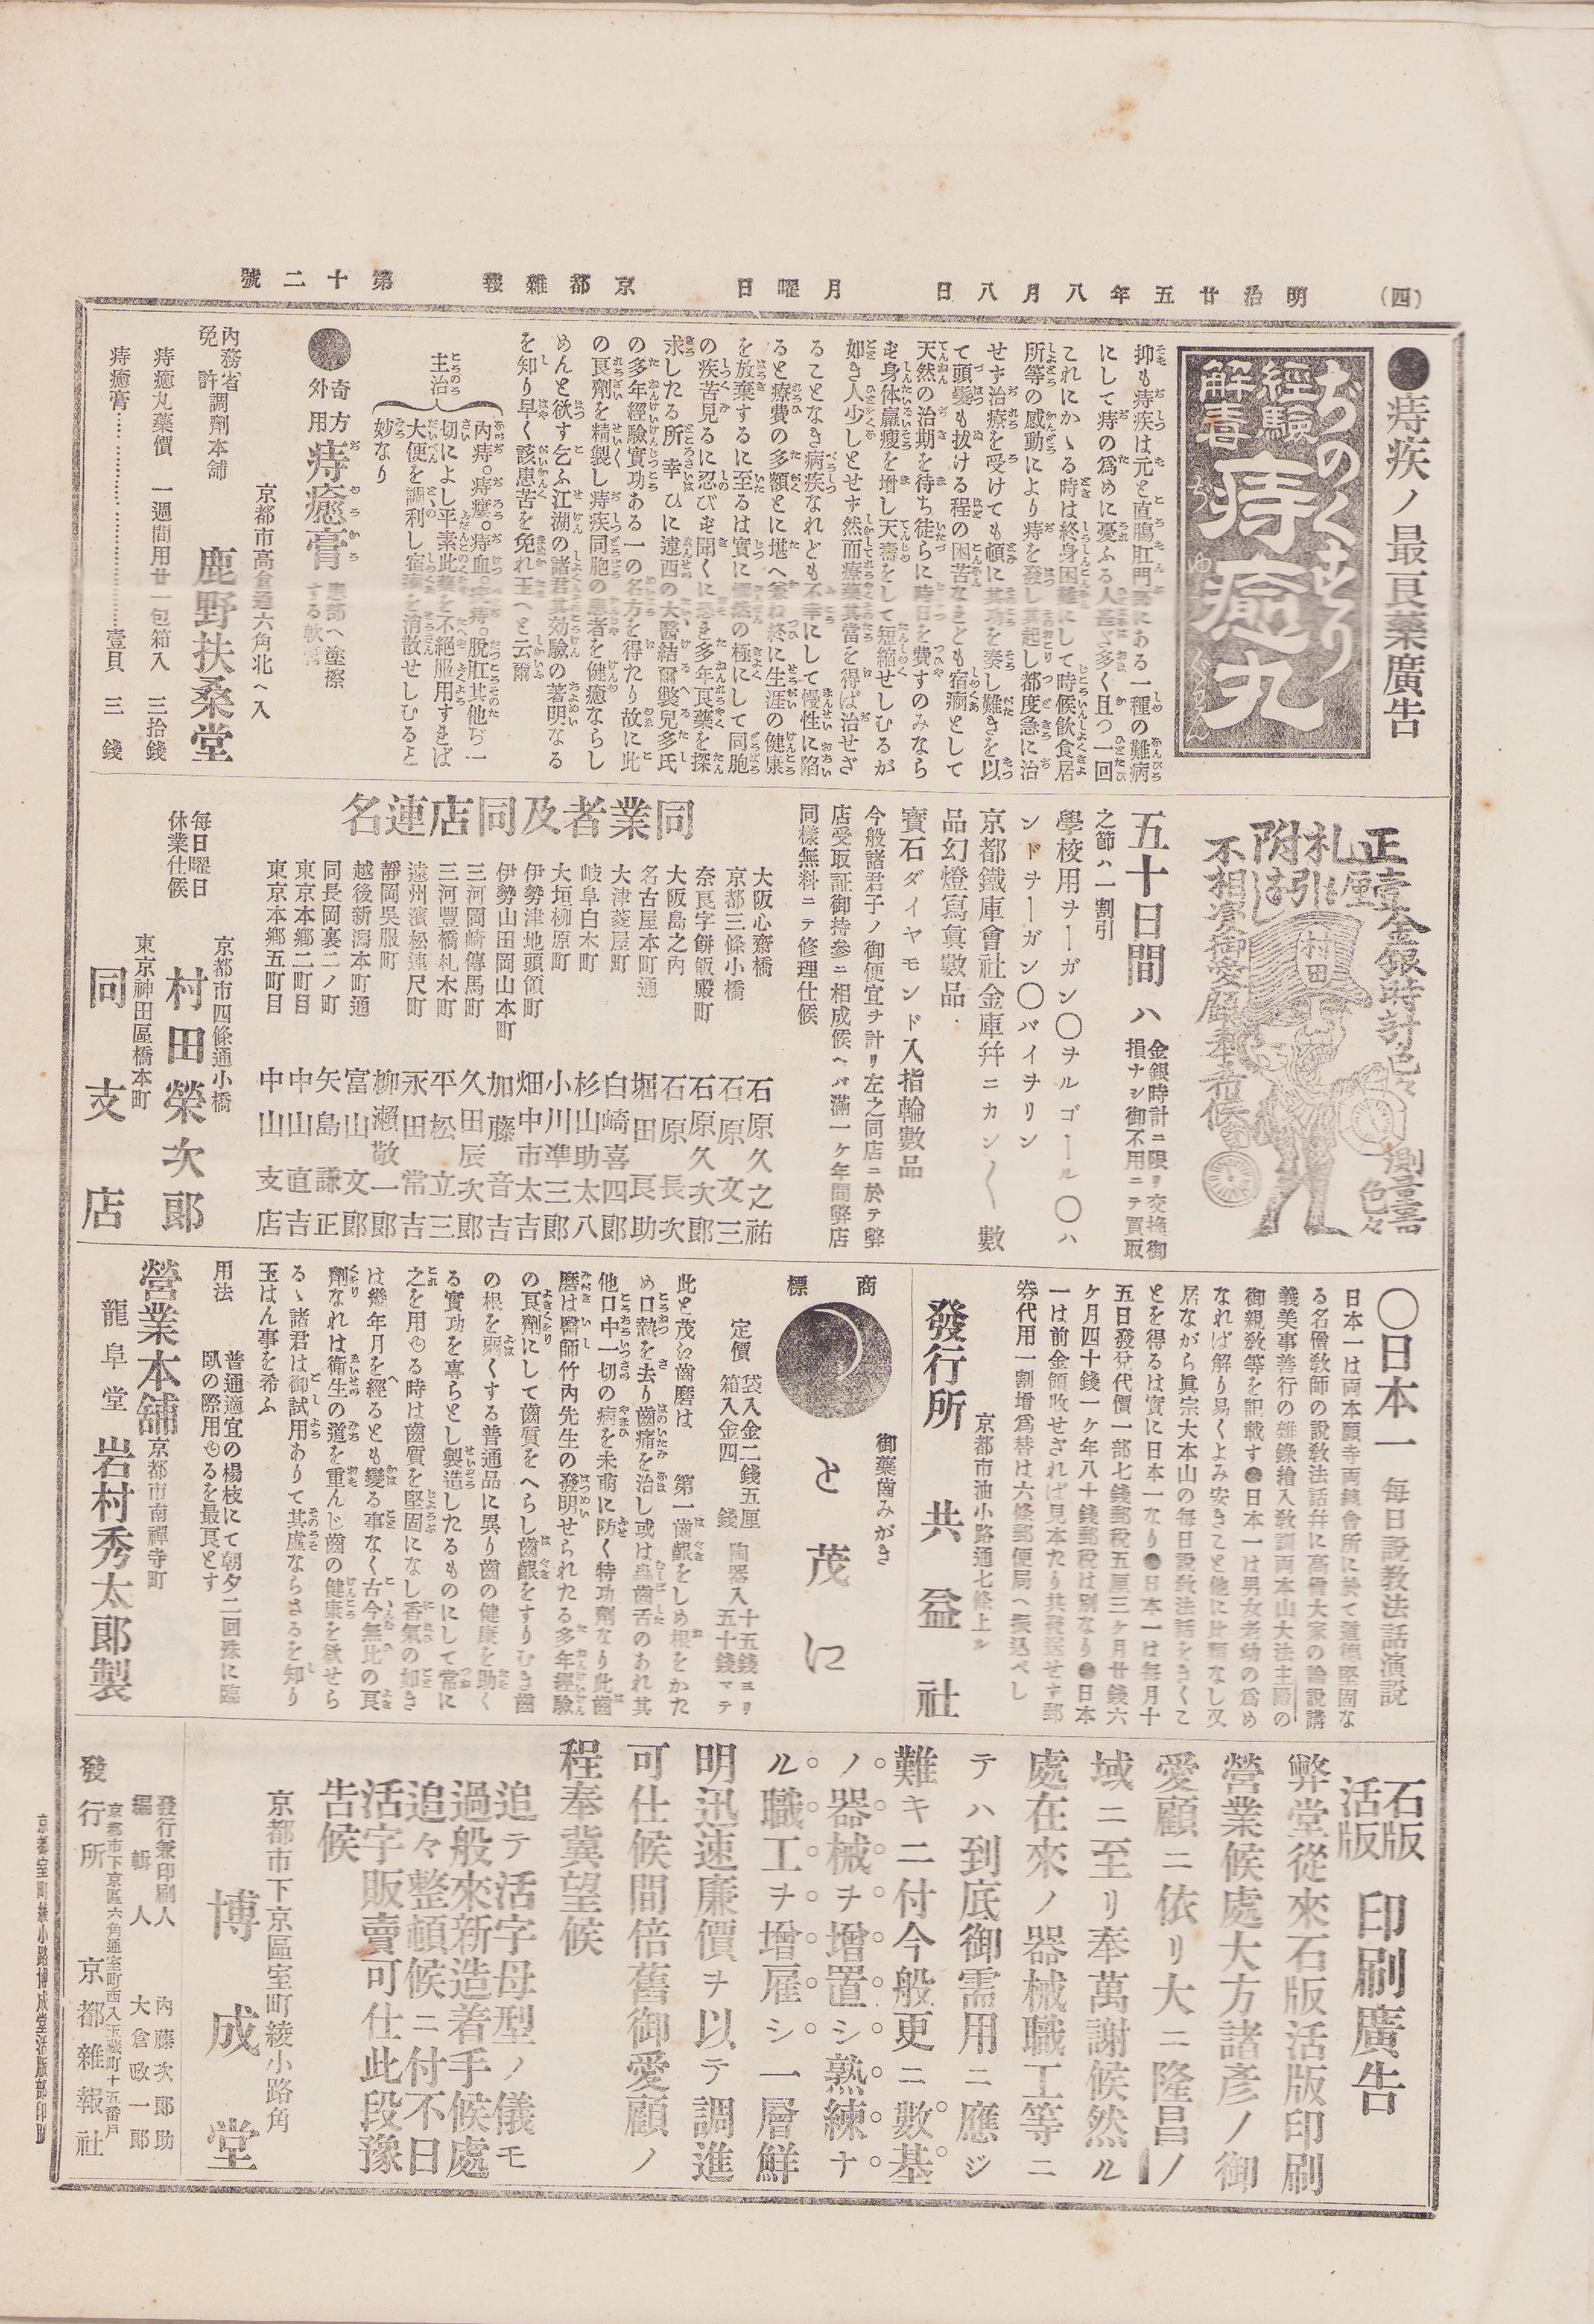 (四) 明治廿五年八月八日 月曜日 京都雜報 第十二號
●痔疾ノ最良藥廣告
ぢのくすり
經驗
解毒
痔癒丸
抑も痔疾は元と直膓肛門部にある一種の難病
にして痔の爲めに憂ふる人甚だ多く且つ一回
これにかゝる時は終身困難にして時候飲食居
所等の感動により痔を發し其起し都度急に治
せず治療を受けても頓に其功を奏し難きを以
て頭髮も拔ける程の困苦なきども宿痾として
天然の治期を待ち徒らに時日を費すのみなら
ず身体羸瘦を增し天壽をして短縮せしむるが
如き人少しとせず然而療藥其當を得ば治せざ
ることなき病疾なれども不幸にして慢性に陷
ると療費の多額とに堪へ兼ね終に生涯の健康
を放棄するに至るは實に憫然の極にして同胞
の疾苦見るに忍びず聞くに忍き多年良藥を探
求したる所幸ひに遠西の大醫結爾斃宛多氏
の多年經驗實功ある一の名方を得たり故に此
の良劑を精製し痔疾同胞の患者を健癒ならし
めんと欲す乞ふ江湖の諸君其効驗の著明なる
を知り早く該患苦を免れ玉へと云爾
主治
內痔。痔瘻。痔血。穿痔。脫肛其他ぢ一
切によし平素此藥を不絕服用すきば
大便を調利し宿毒を消散せしむると
妙なり
●
奇方
外用
痔癒膏
患部へ塗擦
する軟膏
京都市高倉通六角北へ入
內務省
免許
調劑本舖
鹿野扶桑堂
痔癒丸藥價 一週間用廿一包箱入 三拾錢
痔癒膏……………………壹貝 三錢
正札附
金銀時計色々
測量器色々
村田
不相變御愛顧奉希候
五十日間ハ
金銀時計ニ限リ交換御
損ナシ御不用ニテ買取
之節ハ一割引
學校用ヲーガン〇ヲルゴール〇ハ
ンドヲーガン〇バイヲリン
京都鐵庫會社金庫幷ニカン〱數
品幻燈寫眞數品.
寶石ダイヤモンド入指輪數品
今般諸君子ノ御便宜ヲ計リ左之同店ニ於テ弊
店受取証御持參ニ相成候ヘバ滿一ケ年間弊店
同樣無料ニテ修理仕候
同業者及同店連名
大阪心齋橋 石原久之祐
京都三條小橋 石原文三
奈良字餅飯殿町 石原久次郎
大阪島之內 石原長次
名古屋本町通 堀田良助
大津菱屋町 白崎喜四郎
岐阜白木町 杉山助太八
大垣柳原町 小川準三郎
伊勢津地頭領町 畑中市太吉
伊勢山田岡山本町 加藤音吉
三河岡崎傳馬町 久田辰次郎
三河豐橋札木町 平松立三
遠州濱松連尺町 永田常吉
靜岡吳服町 柳瀨敬一郎
越後新潟本町通 富山文郎
同長岡裏二ノ町 矢島謙正
東京本鄉二町目 中山直吉
東京本鄉五町目 中山支店
京都市四條通小橋
村田榮次郎
東京神田區橋本町
同支店
每日曜日
休業仕候
〇日本一 每日說教法話演說
日本一は両本願寺両議會所に於て道德堅固な
る名僧教師の說教法話幷に高僧大家の論說講
義美事善行の雜錄繪入教訓両本山大法主殿の
御親教等を記載す●日本一は男女老幼の爲め
なれば解り易くよみ安きこと他に比類なし又
居ながら眞宗大本山の每日說教法話をきくこ
とを得るは實に日本一なり●日本一は每月十
五日發兌代價一部七錢郵稅五厘三ケ月廿錢六
ケ月四十錢一ケ年八十錢郵稅は別なり●日本
一は前金領收せざれば見本たり共發送せす郵
券代用一割增爲替は六條郵便局へ振込べし
京都市油小路通七條上ル
發行所 共益社
商標
御藥齒みがき
と茂に
定價
袋入金二錢五厘
箱入金四錢
陶器入
十五錢ヨリ
五十錢マテ
此と茂に齒磨は 第一齒齦をしめ根をかた
め口熱を去り齒痛を治し或は蟲齒舌のあれ其
他口中一切の病を未萠に防く特功劑なり此齒
磨は醫師竹內先生の發明せられたる多年經驗
の良劑にして齒質をへらし齒齦をすりむき齒
の根を弱くする普通品に異り齒の健康を助く
る實功を專らとし製造したるものにして常に
之を用ゆる時は齒質を堅固になし香氣の如き
は幾年月を經るとも變る事なく古今無比の良
劑なれは衛生の道を重んじ齒の健康を欲せら
るゝ諸君は御試用ありて其虛ならさるを知り
玉はん事を希ふ
用法
普通適宜の楊枝にて朝夕二回殊に臨
臥の際用ゆるを最良とす
營業本舖
京都市南禪寺町
龍阜堂 岩村秀太郎製
石版
活版
印刷廣告
弊堂從來石版活版印刷
營業候處大方諸彥ノ御
愛顧ニ依リ大ニ隆昌ノ
域ニ至リ奉萬謝候然ル
處在來ノ器械職工等ニ
テハ到底御需用ニ應ジ
難キニ付今般更ニ數基
ノ器械ヲ增置シ熟練ナ
ル職工ヲ增雇シ一層鮮
明迅速廉價ヲ以テ調進
可仕候間倍舊御愛顧ノ
程奉冀望候
追テ活字母型ノ儀モ
過般來新造着手候處
追々整頓候ニ付不日
活字販賣可仕此段豫
告候
京都市下京區室町綾小路角
博成堂
發行兼印刷人 內藤次郎助
編輯人 大倉政一郎
京都市下京區六角通室町西入玉藏町十五番戶
發行所 京都雜報社
京都室町綾小路博成堂活版部印刷